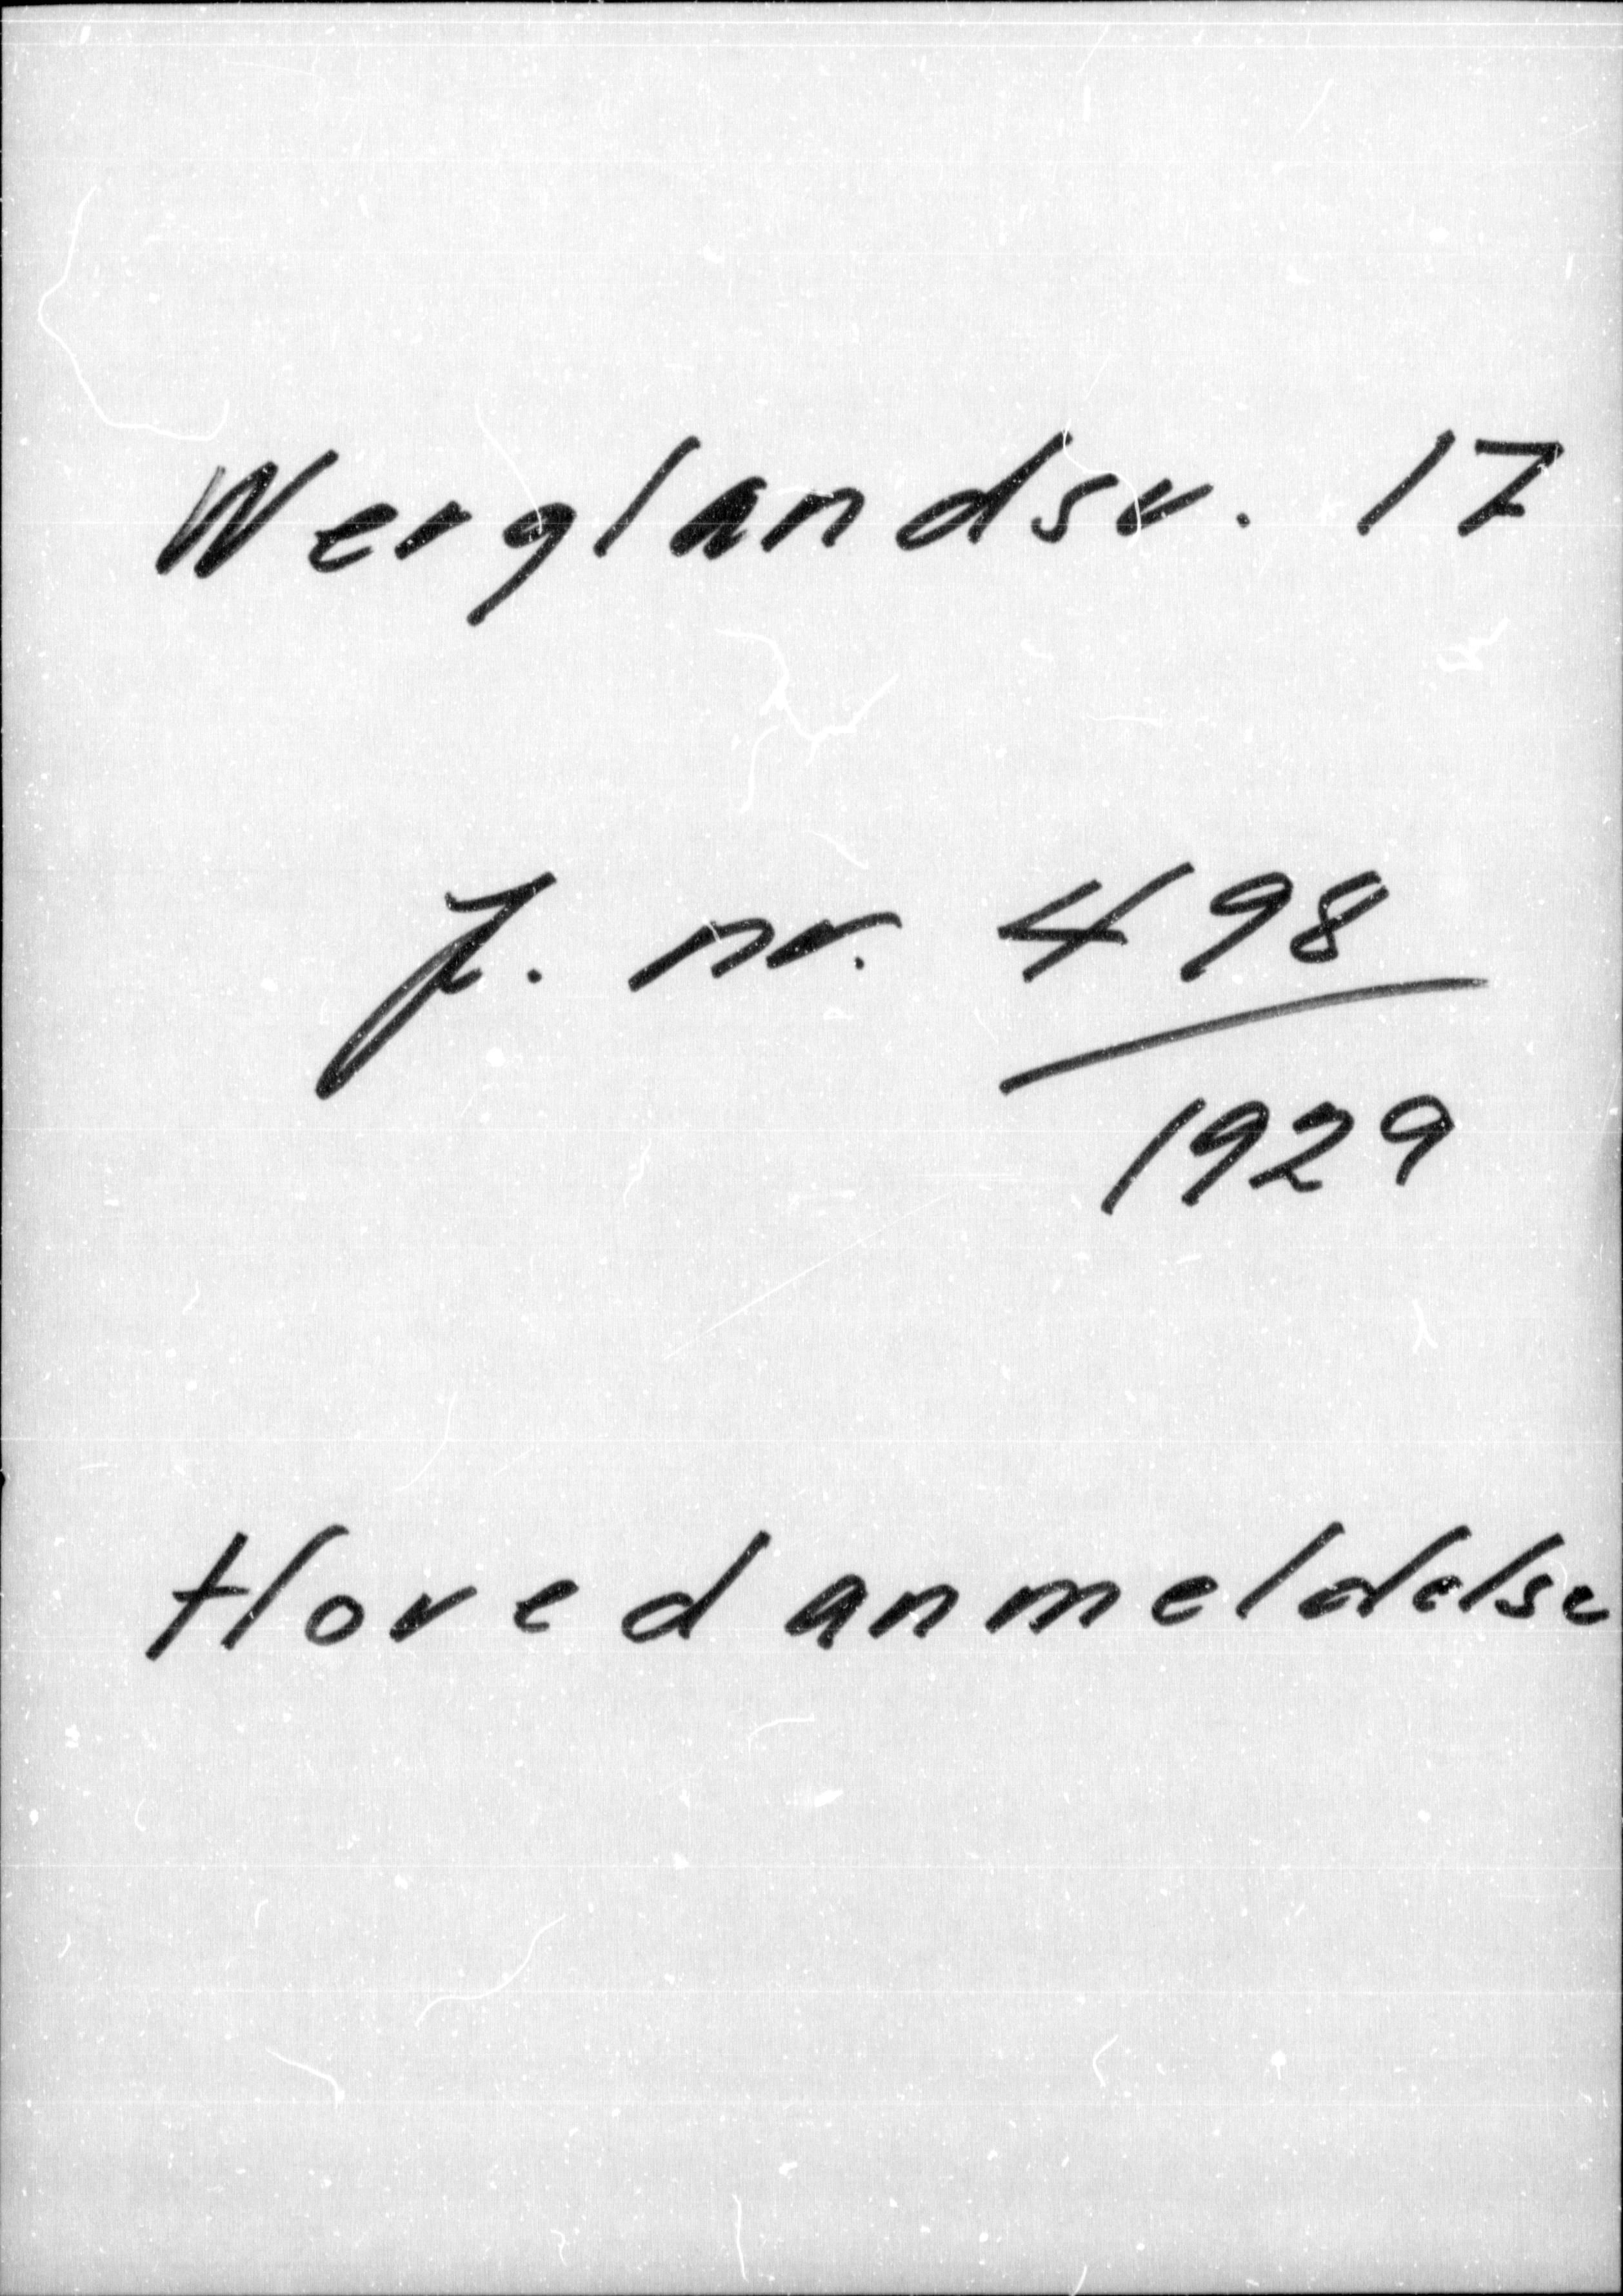 Werglandsv. 17
J. nr. 498
1929
Hovedanmeldelse